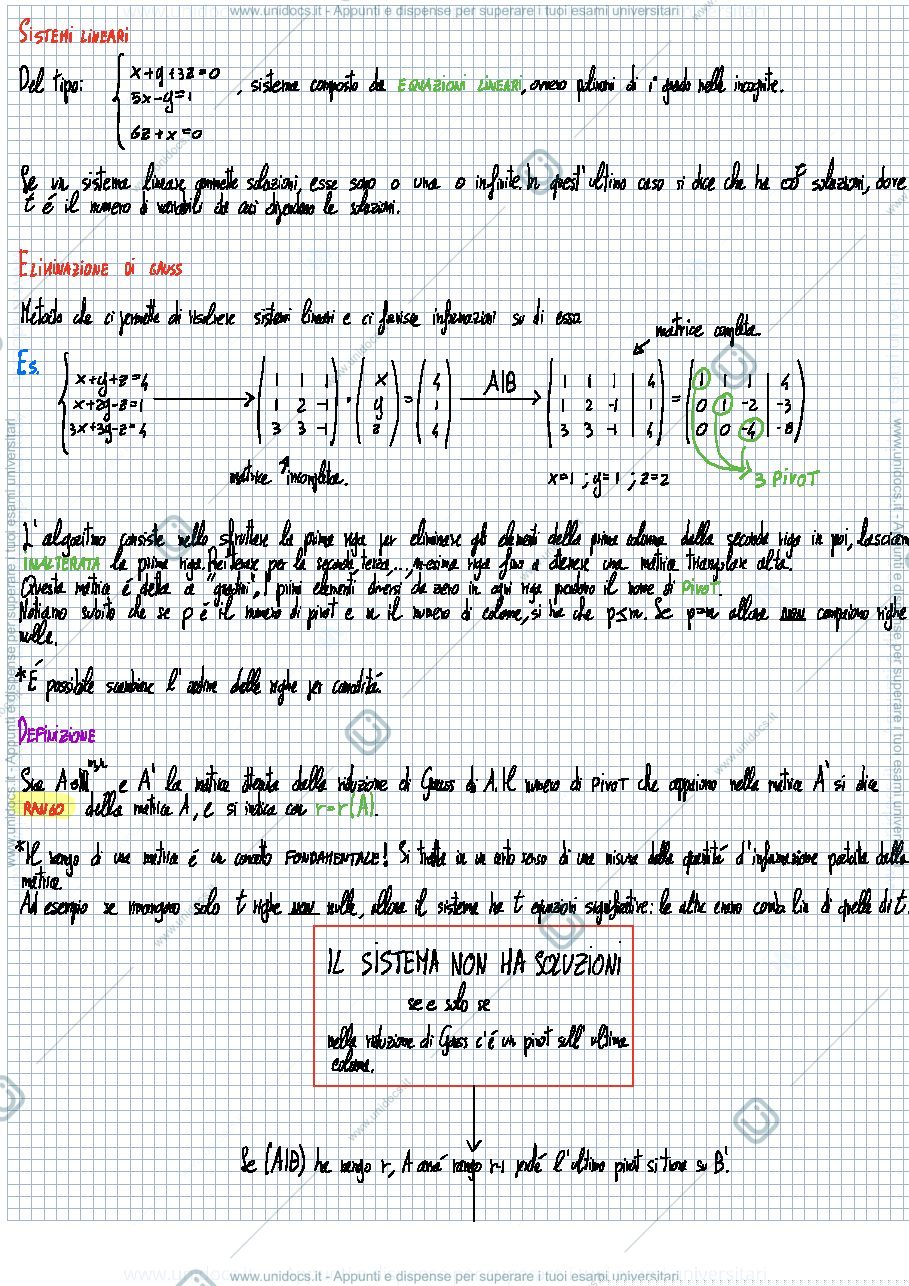 www.unidocs.it - Appunti e dispense per superare i tuoi esami universitari
SISTEMI LINEARI
Del tipo: { x+y+3z=0 , sistema composto da EQUAZIONI LINEARI, ovvero polinomi di 1° grado nelle incognite.
5x-y=1
6z+x=0
Se un sistema lineare ammette soluzioni, esse sono o una o infinite. In quest'ultimo caso si dice che ha ∞^t soluzioni, dove
t é il numero di variabili da cui dipendono le soluzioni.
ELIMINAZIONE DI GAUSS
Metodo che ci permette di risolvere sistemi lineari e ci fornisce informazioni su di esso
matrice completa.
Es. { x+y+z=4 → ( 1 1 1 ) · ( x ) = ( 4 ) A|B → ( 1 1 1 | 4 ) = ( 1 1 1 | 4 )
x+2y-z=1 ( 1 2 -1 ) ( y ) ( 1 ) ( 1 2 -1 | 1 ) ( 0 1 -2 | -3 )
3x+3y-z=4 ( 3 3 -1 ) ( z ) ( 4 ) ( 3 3 -1 | 4 ) ( 0 0 -4 | -8 )
matrice incompleta. x=1 ; y=1 ; z=2 3 PIVOT
L'algoritmo consiste nello sfruttare la prima riga per eliminare gli elementi della prima colonna dalla seconda riga in poi, lascian
INALTERATA la prima riga. Poi iterare per la seconda, terza, ..., n-esima riga fino a ottenere una matrice triangolare alta.
Questa matrice é detta a "gradini", I primi elementi diversi da zero in ogni riga prendono il nome di PIVOT.
Notiamo subito che se p é il numero di pivot e n il numero di colonne, si ha che p≤n. Se p=n allora non compaiono righe
nulle.
*É possibile scambiare l'ordine delle righe per comodità.
DEFINIZIONE
Sia A e A' la matrice ottenuta dalla riduzione di Gauss di A. Il numero di PIVOT che appaiono nella matrice A' si dice
RANGO della matrice A, e si indica con r=r(A).
*Il rango di una matrice é un concetto FONDAMENTALE! Si tratta in un certo senso di una misura della quantità d'informazione portata dalla
matrice.
Ad esempio se rimangono solo t righe non nulle, allora il sistema ha t equazioni significative: le altre erano comb. lin di quelle di t.
IL SISTEMA NON HA SOLUZIONI
se e solo se
nella riduzione di Gauss c'é un pivot sull'ultima
colonna.
Se (A|B) ha rango r, A avrá rango r-1 perché l'ultimo pivot si trova su B'.
www.unidocs.it - Appunti e dispense per superare i tuoi esami universitari